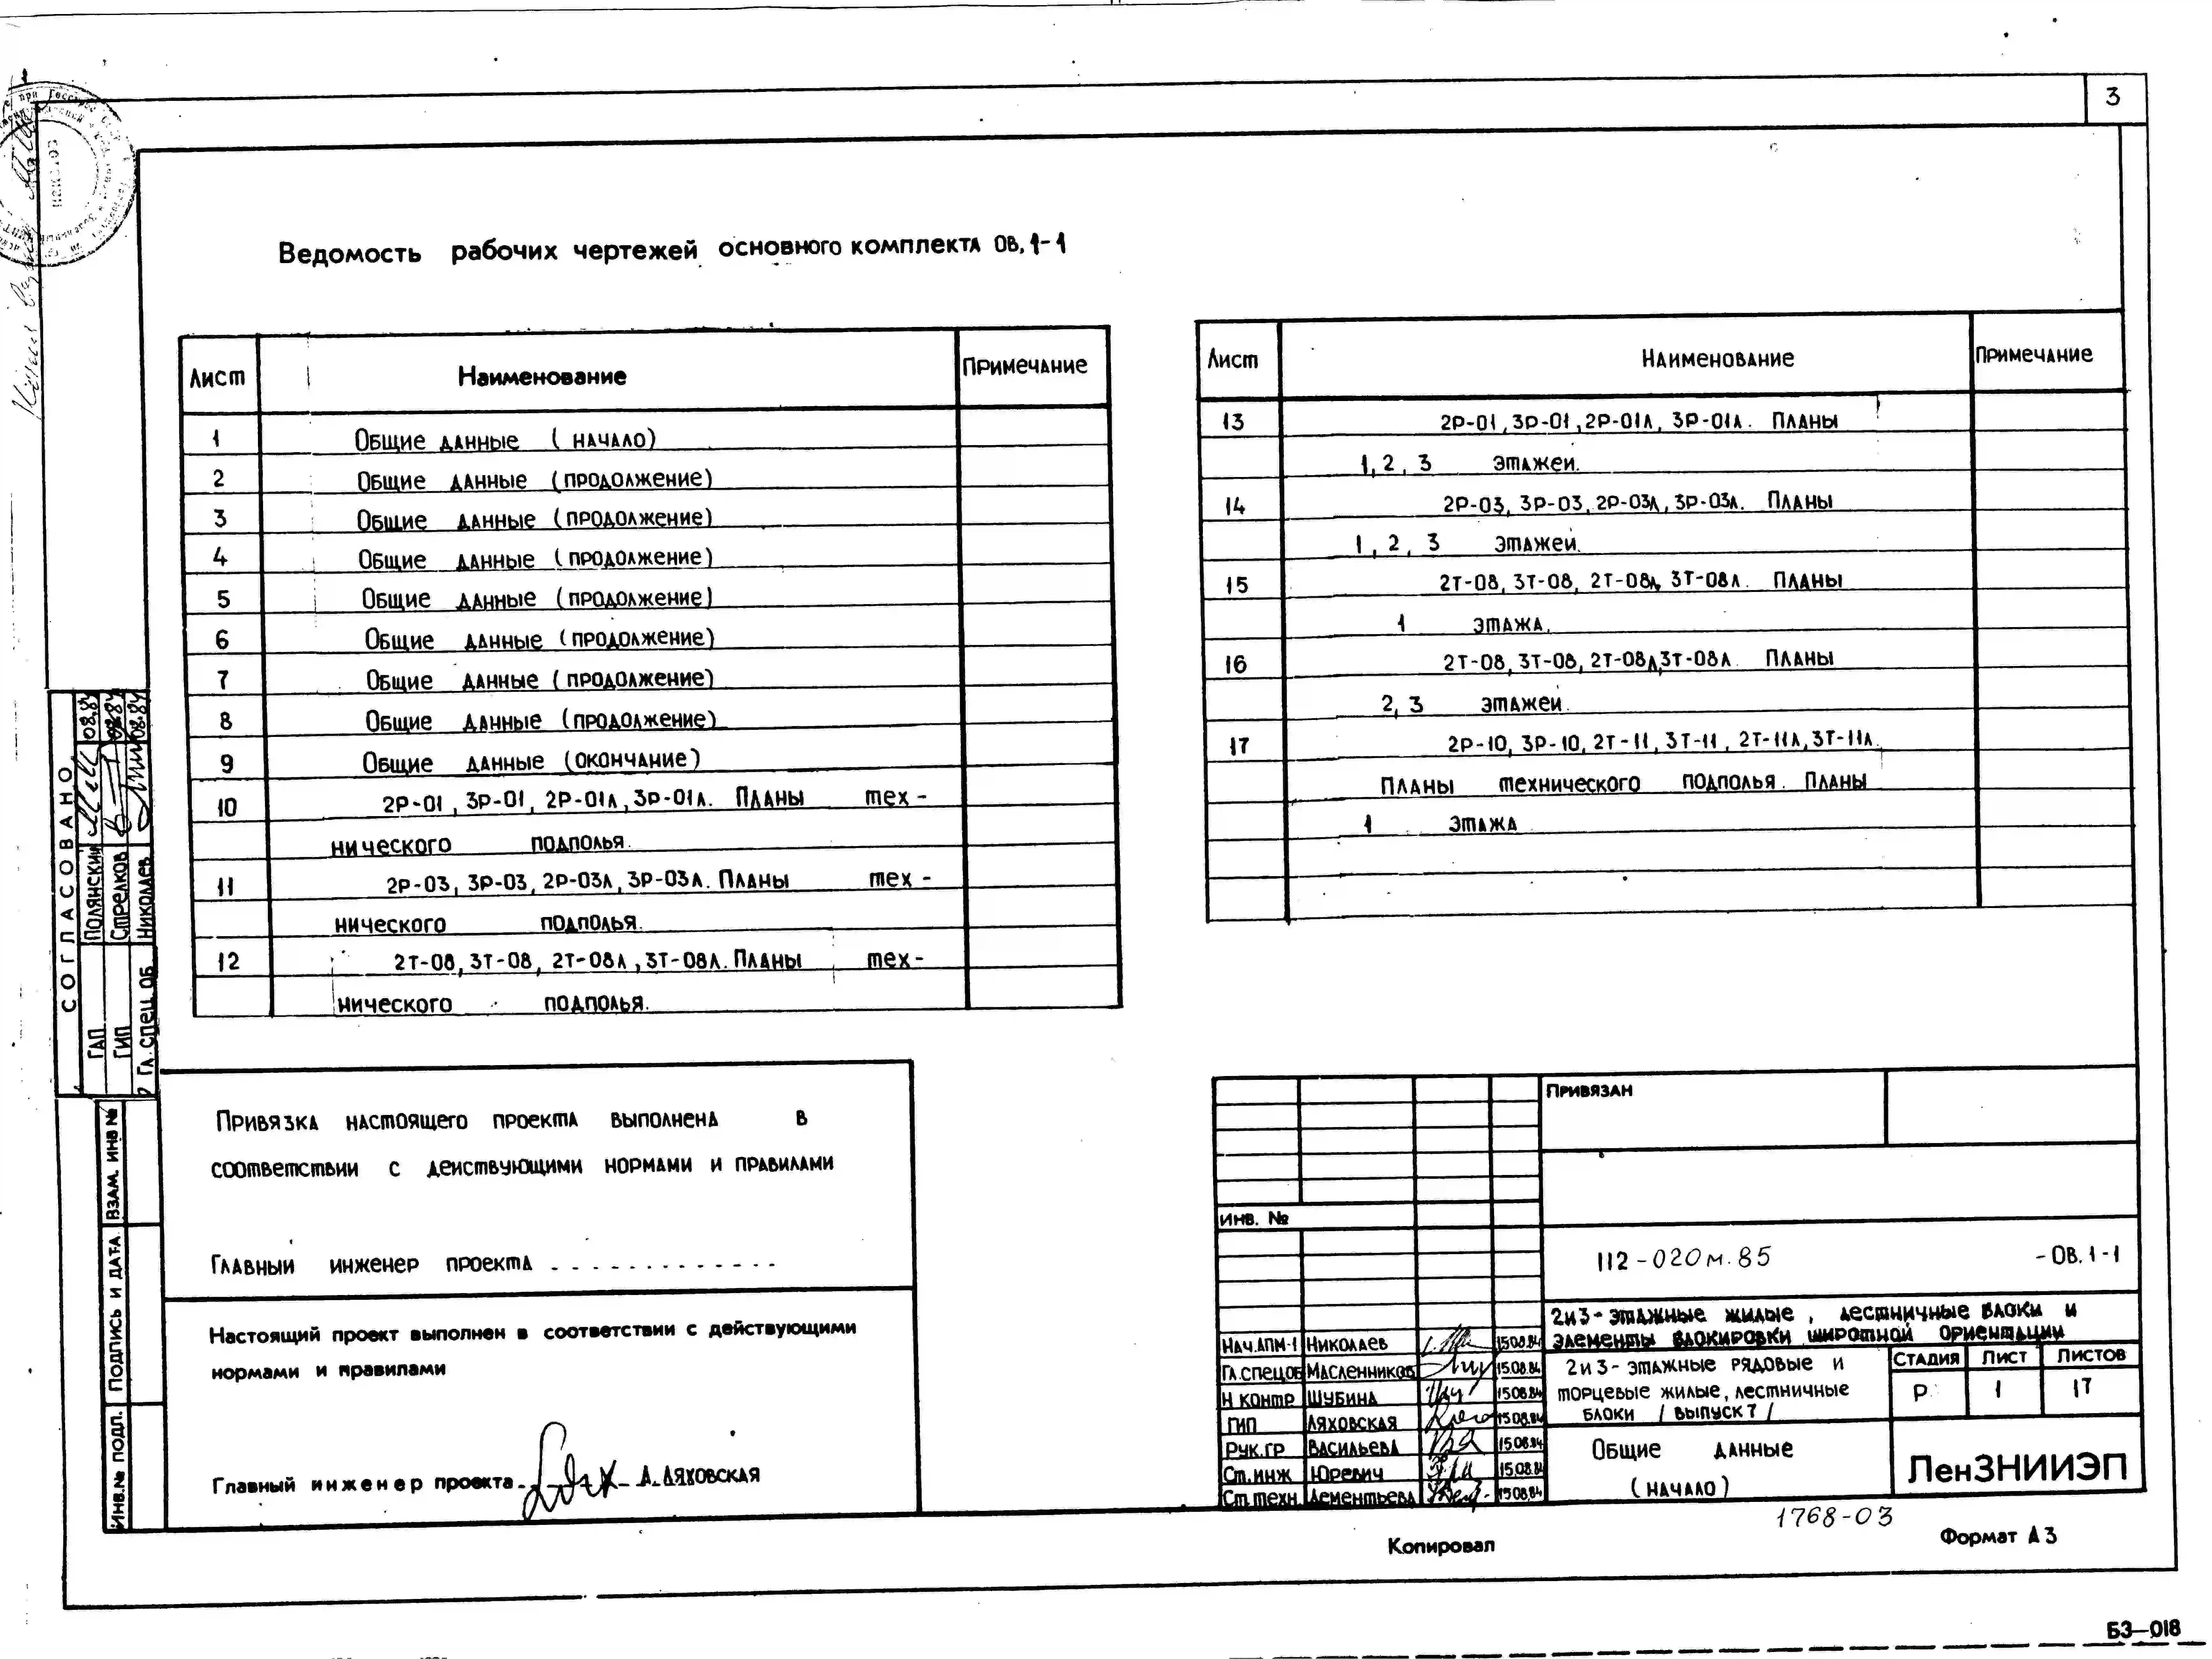 3
Ведомость рабочих чертежей основного комплекта ОВ.1-1
Лист Наименование Примечание
1 Общие данные (начало)
2 Общие данные (продолжение)
3 Общие данные (продолжение)
4 Общие данные (продолжение)
5 Общие данные (продолжение)
6 Общие данные (продолжение)
7 Общие данные (продолжение)
8 Общие данные (продолжение)
9 Общие данные (окончание)
10 2Р-01, 3Р-01, 2Р-01л, 3Р-01л. Планы тех-
нического подполья.
11 2Р-03, 3Р-03, 2Р-03л, 3Р-03л. Планы тех-
нического подполья.
12 2Т-08, 3Т-08, 2Т-08л, 3Т-08л. Планы тех-
нического подполья.
Лист Наименование Примечание
13 2Р-01, 3Р-01, 2Р-01л, 3Р-01л. Планы
1, 2, 3 этажей.
14 2Р-03, 3Р-03, 2Р-03л, 3Р-03л. Планы
1, 2, 3 этажей.
15 2Т-08, 3Т-08, 2Т-08л, 3Т-08л. Планы
1 этажа.
16 2Т-08, 3Т-08, 2Т-08л, 3Т-08л. Планы
2, 3 этажей.
17 2Р-10, 3Р-10, 2Т-11, 3Т-11, 2Т-11л, 3Т-11л.
Планы технического подполья. Планы
1 этажа
СОГЛАСОВАНО
ГАП Полянский 08.84
ГИП Стрелков 08.84
Гл. спец ОБ Николаев 08.84
Взам. инв №
Подпись и дата
Инв.№ подл.
Привязка настоящего проекта выполнена в
соответствии с действующими нормами и правилами
Главный инженер проекта
Настоящий проект выполнен в соответствии с действующими
нормами и правилами
Главный инженер проекта А. Ляховская
Привязан
Инв. №
112-020м.85 -ОВ.1-1
2и3-этажные жилые, лестничные блоки и
элементы блокировки широтной ориентации
Нач.АПМ-1 Николаев 15.08.84
Гл.спец.ОБ Масленников 15.08.84
Н контр Шубина 15.08.84
ГИП Ляховская 15.08.84
Рук.гр Васильева 15.08.84
Ст.инж Юревич 15.08.84
Ст.техн Дементьева 15.08.84
2и3-этажные рядовые и
торцевые жилые, лестничные
блоки /выпуск 7/
Стадия Лист Листов
Р 1 17
Общие данные
(начало)
ЛенЗНИИЭП
1768-03
Копировал
Формат А3
БЗ-018